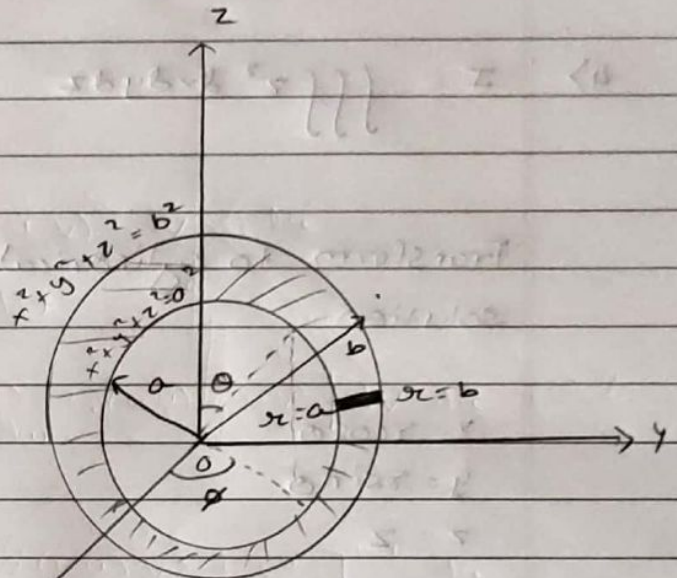 z
x² + y² + z² = b²
x² + y² + z² = a²
a
θ
b
r = a
r = b
y
0
φ